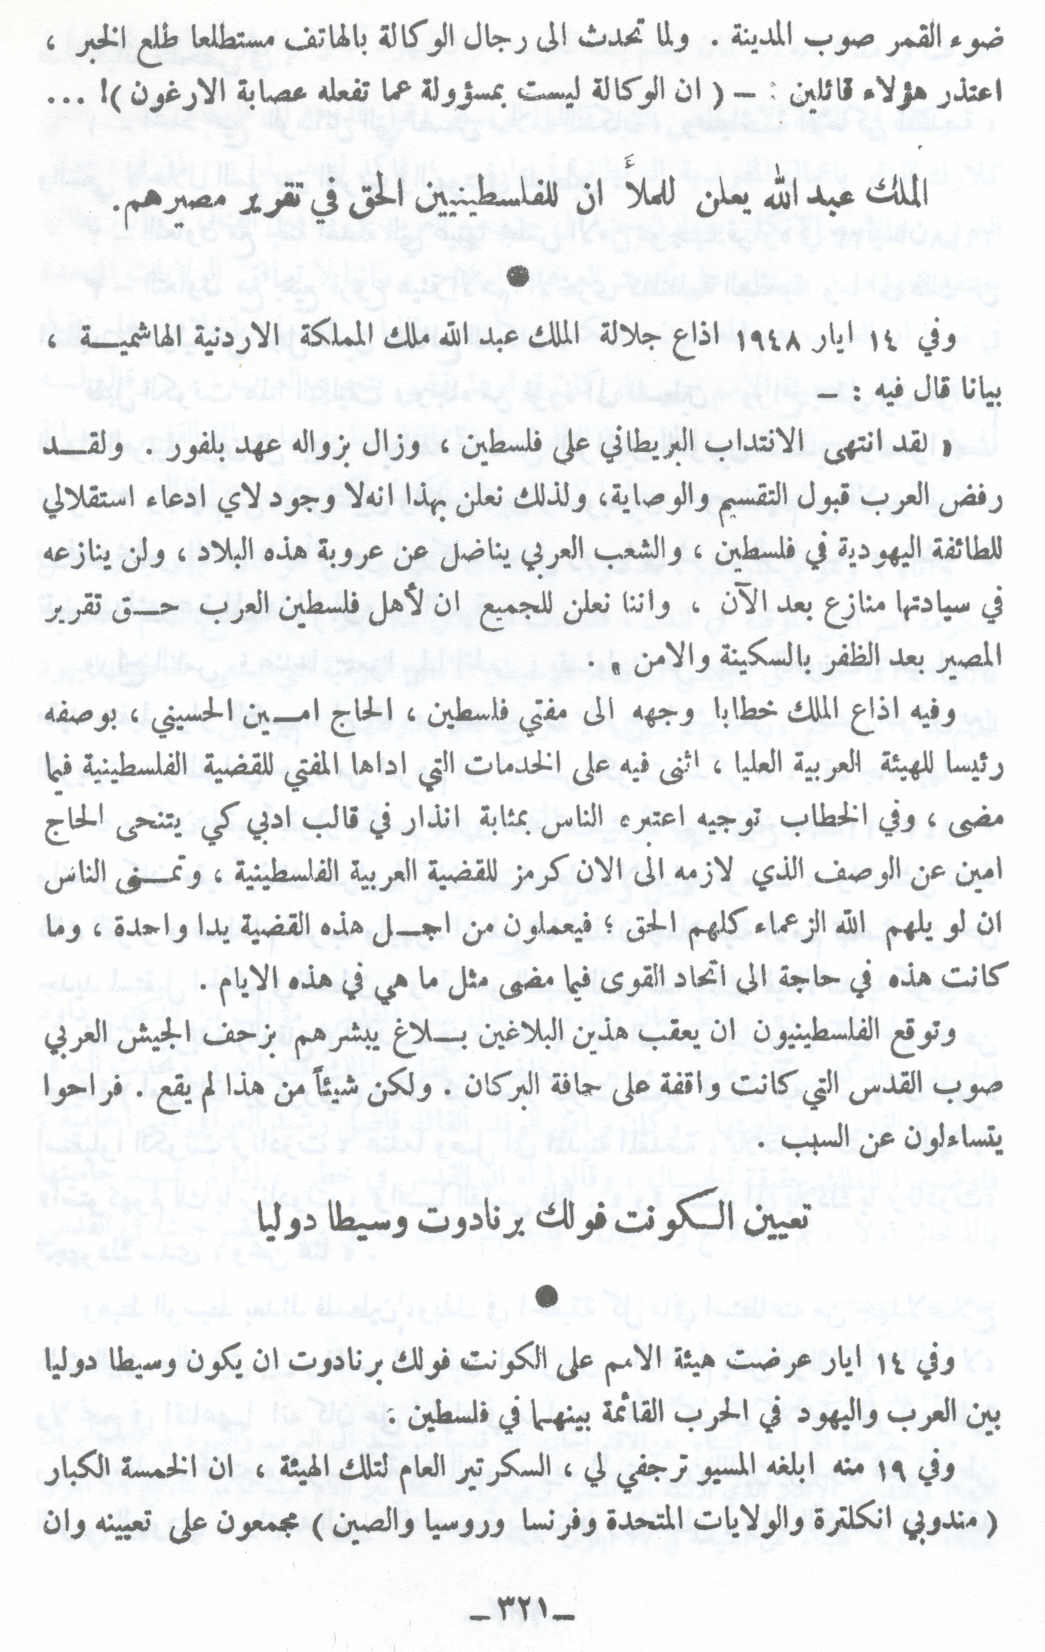 ضوء القمر صوب المدينة . ولما تحدث الى رجال الوكالة بالهاتف مستطلعا طلع الخبر ،
اعتذر هؤلاء قائلين : — ( ان الوكالة ليست بمسؤولة عما تفعله عصابة الارغون )! ...
الملك عبد الله يعلن للملأ ان للفلسطينيين الحق في تقرير مصيرهم.
●
وفي ١٤ ايار ١٩٤٨ اذاع جلالة الملك عبد الله ملك المملكة الاردنية الهاشميــة ،
بيانا قال فيه : —
« لقد انتهى الانتداب البريطاني على فلسطين ، وزال بزواله عهد بلفور . ولقــد
رفض العرب قبول التقسيم والوصاية، ولذلك نعلن بهذا انه لا وجود لاي ادعاء استقلالي
للطائفة اليهودية في فلسطين ، والشعب العربي يناضل عن عروبة هذه البلاد ، ولن ينازعه
في سيادتها منازع بعد الآن ، واننا نعلن للجميع ان لأهل فلسطين العرب حــق تقرير
المصير بعد الظفر بالسكينة والامن » .
وفيه اذاع الملك خطابا وجهه الى مفتي فلسطين ، الحاج امــين الحسيني ، بوصفه
رئيسا للهيئة العربية العليا ، اثنى فيه على الخدمات التي اداها المفتي للقضية الفلسطينية فيما
مضى ، وفي الخطاب توجيه اعتبره الناس بمثابة انذار في قالب ادبي كي يتنحى الحاج
امين عن الوصف الذي لازمه الى الان كرمز للقضية العربية الفلسطينية ، وتمــنى الناس
ان لو يلهم الله الزعماء كلهم الحق ؛ فيعملون من اجــل هذه القضية يدا واحدة ، وما
كانت هذه في حاجة الى اتحاد القوى فيما مضى مثل ما هي في هذه الايام .
وتوقع الفلسطينيون ان يعقب هذين البلاغين بــلاغ يبشرهم بزحف الجيش العربي
صوب القدس التي كانت واقفة على حافة البركان . ولكن شيئاً من هذا لم يقع . فراحوا
يتساءلون عن السبب .
تعيين الــكونت فولك برنادوت وسيطا دوليا
●
وفي ١٤ ايار عرضت هيئة الامم على الكونت فولك برنادوت ان يكون وسيطا دوليا
بين العرب واليهود في الحرب القائمة بينهما في فلسطين .
وفي ١٩ منه ابلغه المسيو ترجفي لي ، السكرتير العام لتلك الهيئة ، ان الخمسة الكبار
( مندوبي انكلترة والولايات المتحدة وفرنسا وروسيا والصين ) مجمعون على تعيينه وان
— ٣٢١ —